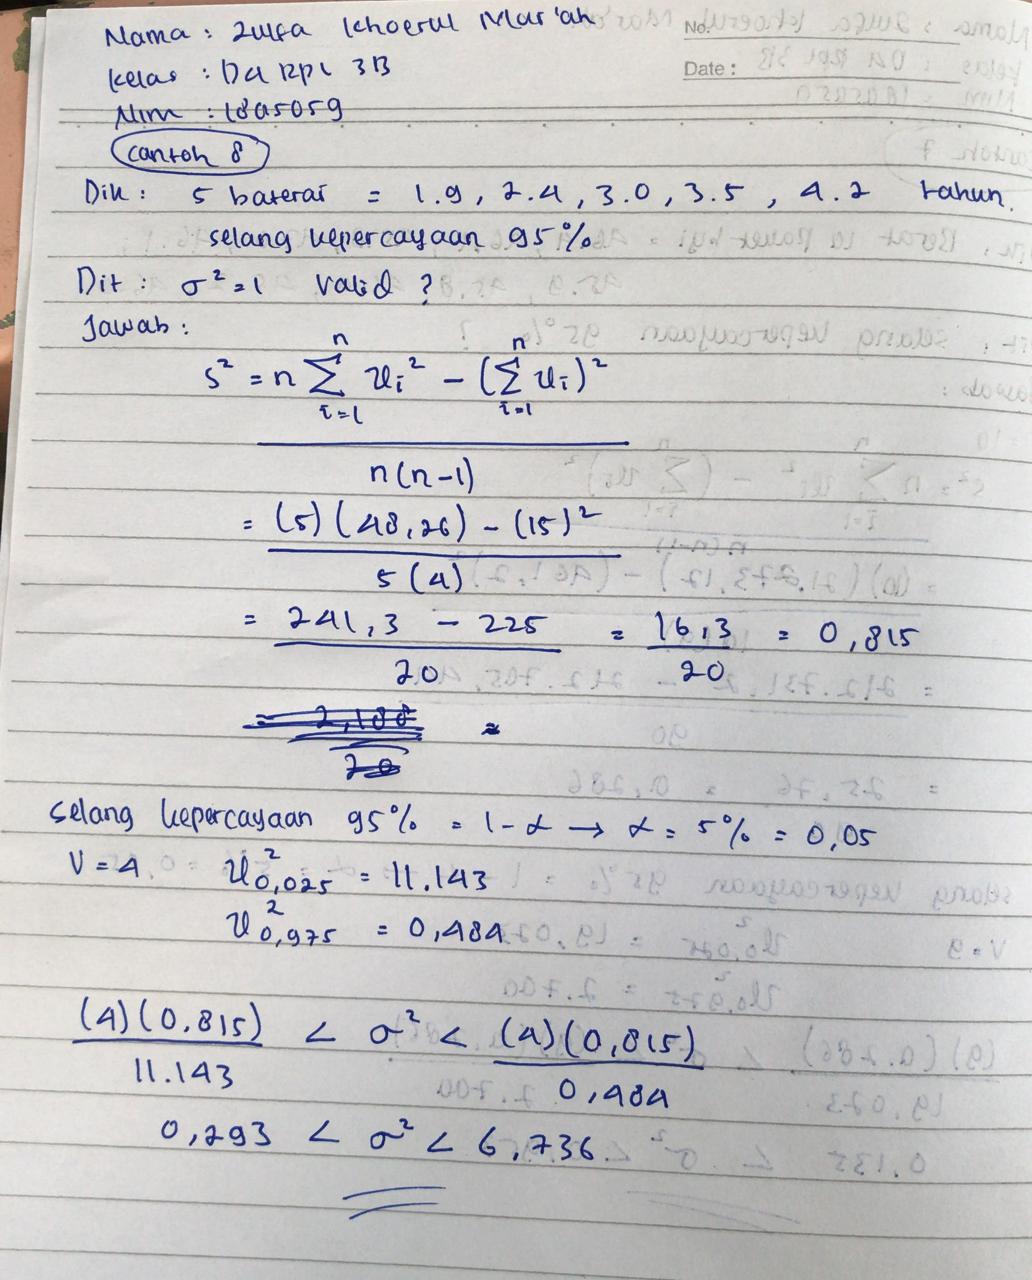 Nama : Zulfa Khoerul Mar'ah
No.
Kelas : D4 RPL 3B
Date :
Nim : 18A5059
Contoh 8
Dik : 5 baterai = 1.9, 2.4, 3.0, 3.5, 4.2 tahun.
selang kepercayaan 95%
Dit : σ² = 1 valid ?
Jawab :
s² = n Σ xi² - (Σ xi)²
n n
i=1 i=1
n(n-1)
= (5) (48,26) - (15)²
5 (4)
= 241,3 - 225 = 16,3 = 0,815
20 20
selang kepercayaan 95% = 1-α → α = 5% = 0,05
V = 4 x²0,025 = 11.143
x²0,975 = 0,484
(4)(0,815) < σ² < (4)(0,815)
11.143 0,484
0,293 < σ² < 6,736